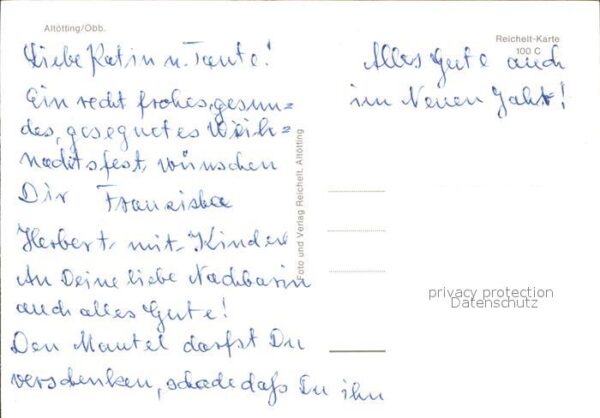 Altötting/Obb.
Reichelt-Karte
100 C
Liebe Patin u. Tante!
Ein recht frohes, gesun=
des, gesegnetes Weih=
nachtsfest, wünschen
Dir Franziska
Herbert, mit Kinder
An Deine liebe Nachbarin
auch alles Gute!
Den Mantel darfst Du
verschenken, schade daß Du ihn
Alles Gute auch
im Neuen Jahr!
Foto und Verlag Reichelt, Altötting
privacy protection
Datenschutz